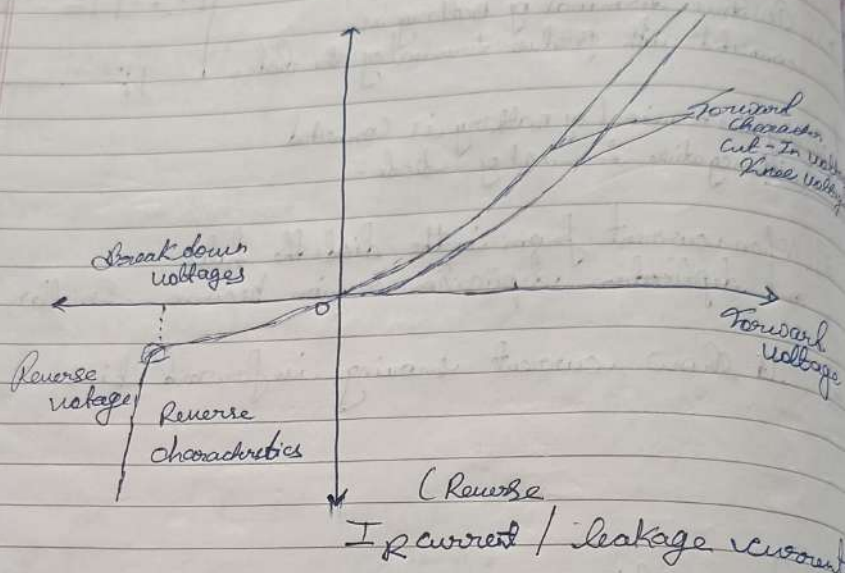 Forward
Character
Cut-In voltag
Knee voltag
Breakdown
voltages
O
Forward
voltage
Reverse
voltage
Reverse
characteristics
(Reverse
IR current / leakage current